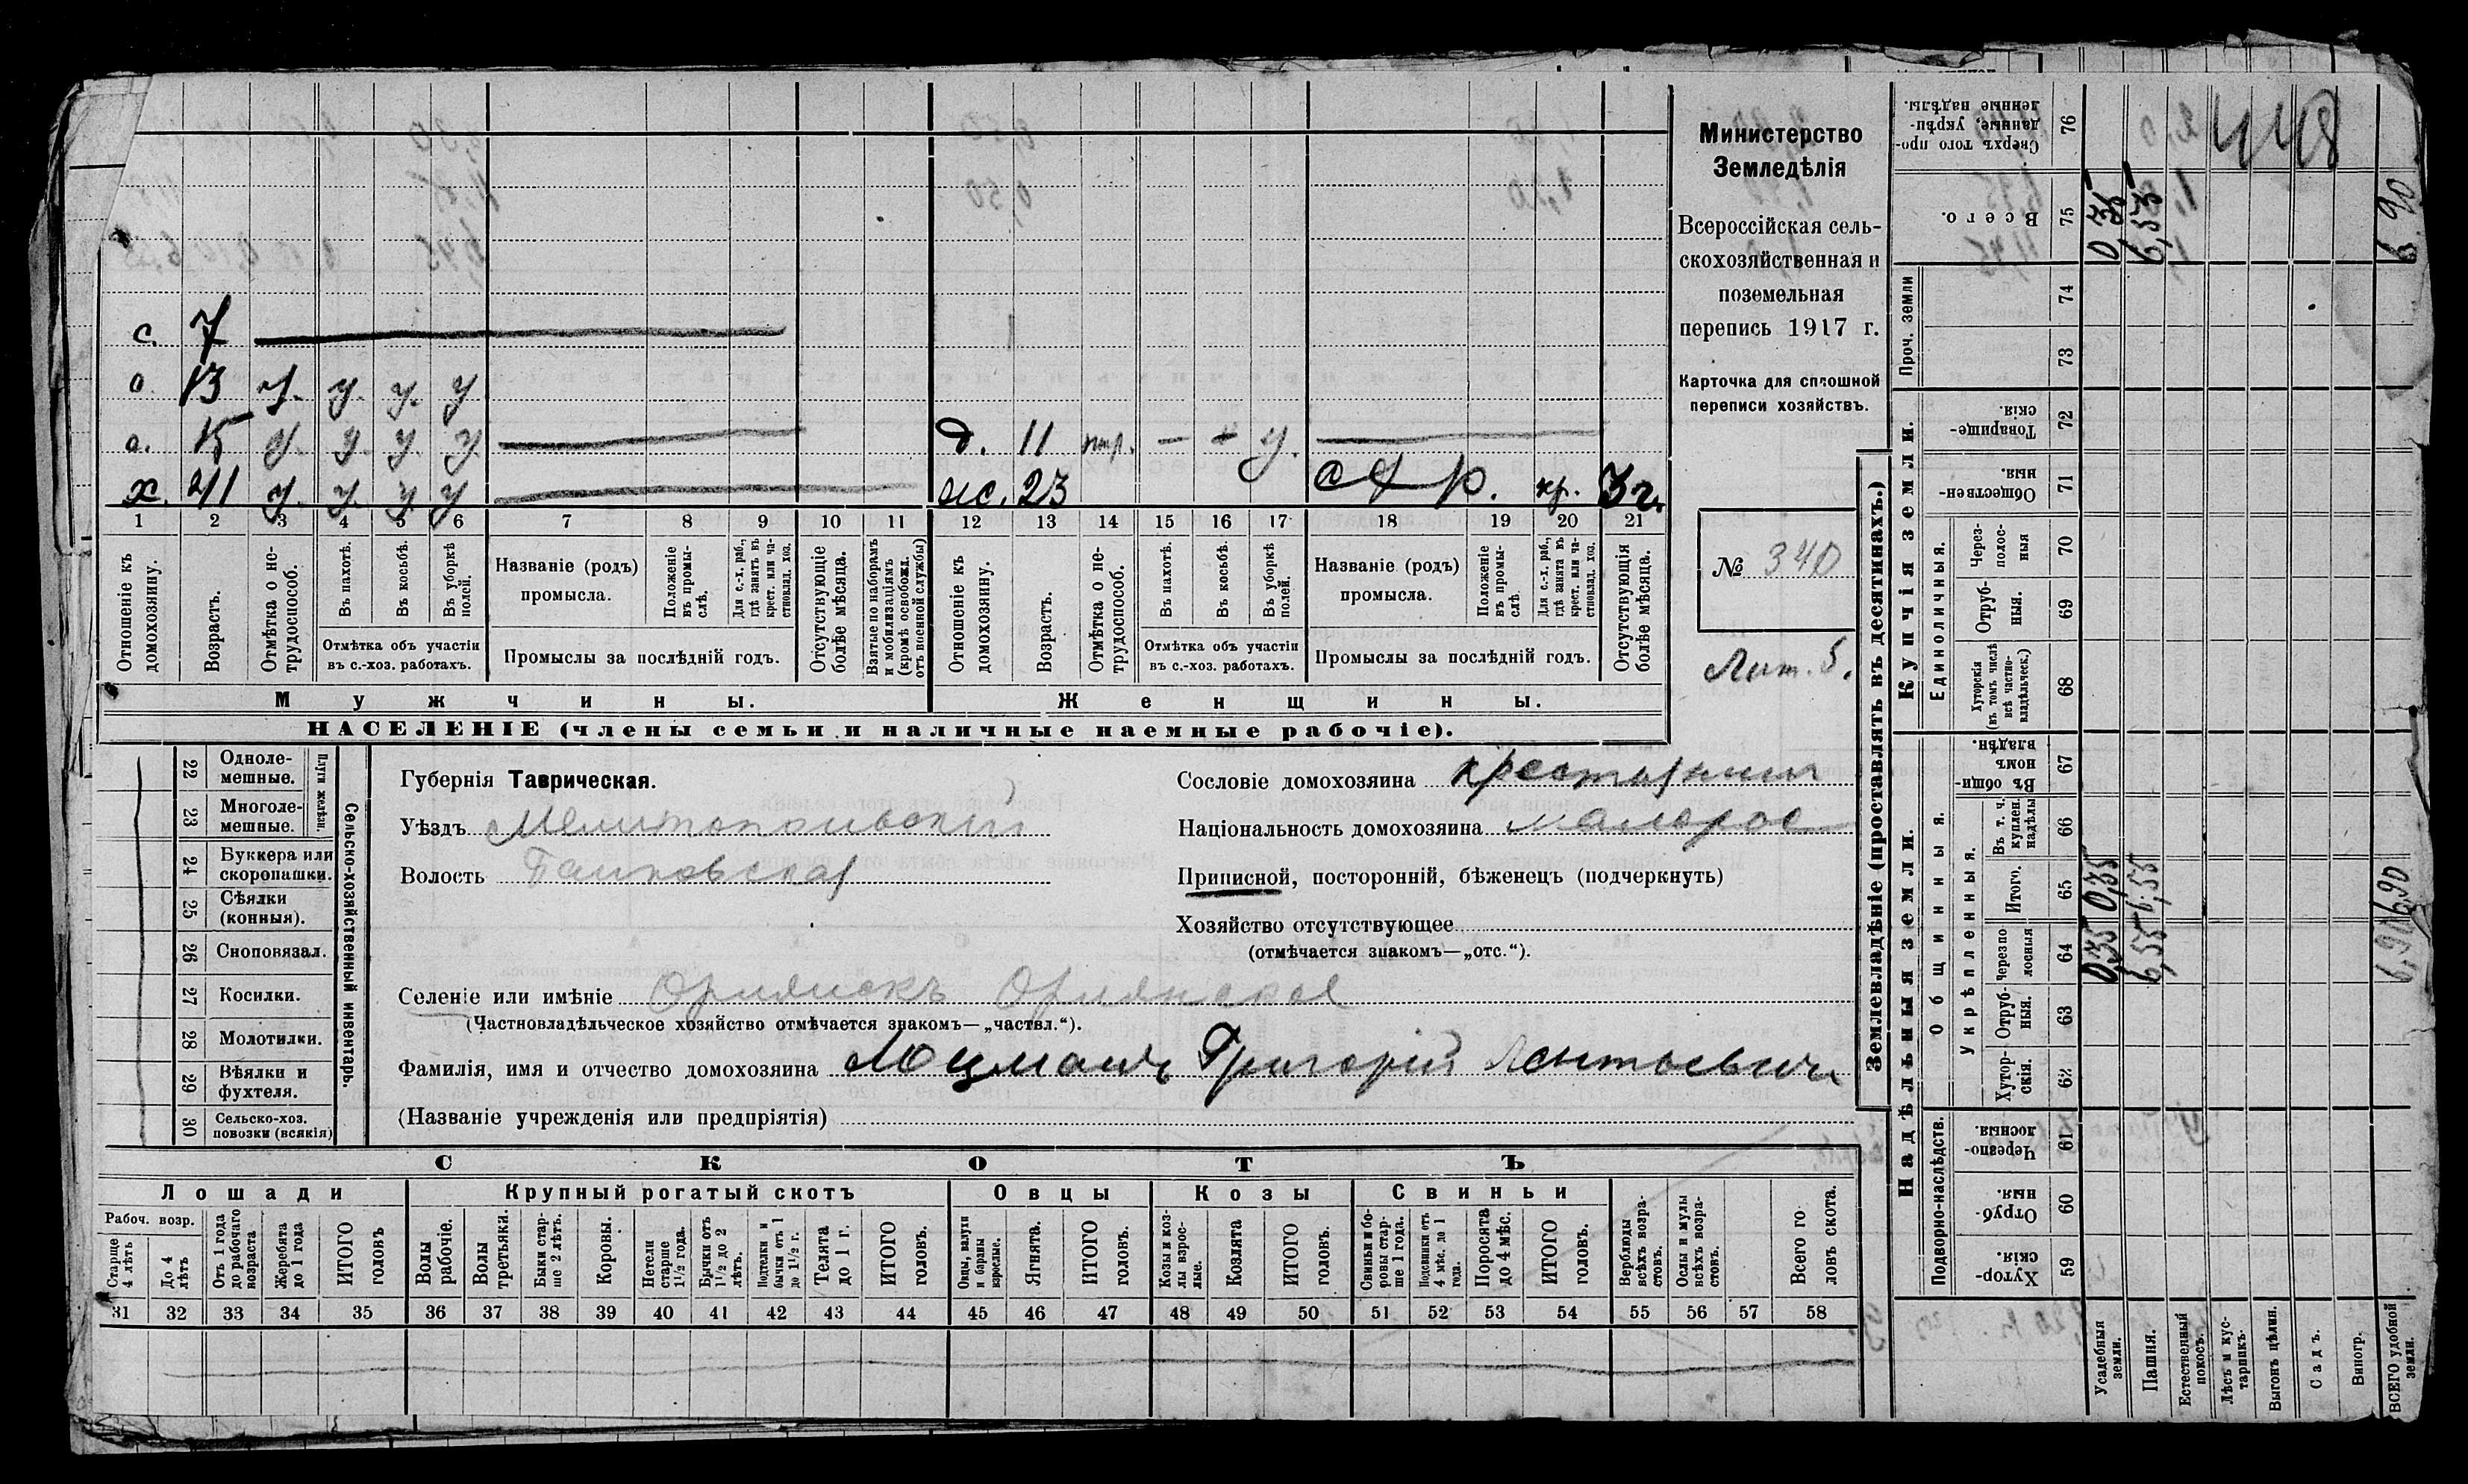 Министерство
Земледѣлія
Всероссійская сель-
скохозяйственная и
поземельная
перепись 1917 г.
Карточка для сплошной
переписи хозяйствъ.
№ 340
Лит. 5.
с. 7
о. 13 у. у. у. у
о. 15 у. у. у. у. д. 11 — у.
х. 41 у. у. у. у 23 с х р. кр. 3 г.
1 2 3 4 5 6 7 8 9 10 11 12 13 14 15 16 17 18 19 20 21
Отношеніе къ домохозяину.
Возрастъ.
Отмѣтка о не-трудоспособ.
Въ пахотѣ.
Въ косьбѣ.
Въ уборкѣ полей.
Отмѣтка объ участіи въ с.-хоз. работахъ.
Названіе (родъ) промысла.
Положеніе въ промы-слѣ.
Для с.-х. раб., гдѣ занятъ въ крест. или ча-стновлад. хоз.
Промыслы за послѣдній годъ.
Отсутствующіе болѣе мѣсяца.
Взятые по наборамъ и мобилизаціямъ (кромѣ освобожд. отъ военной службы)
Отношеніе къ домохозяину.
Возрастъ.
Отмѣтка о не-трудоспособ.
Въ пахотѣ.
Въ косьбѣ.
Въ уборкѣ полей.
Отмѣтка объ участіи въ с.-хоз. работахъ.
Названіе (родъ) промысла.
Положеніе въ промы-слѣ.
Для с.-х. раб., гдѣ занята въ крест. или ча-стновлад. хоз.
Промыслы за послѣдній годъ.
Отсутствующія болѣе мѣсяца.
Мужчины.
Женщины.
НАСЕЛЕНІЕ (члены семьи и наличные наемные рабочіе).
22 Одноле-мешные.
23 Многоле-мешные.
Плуги желѣзн.
24 Буккера или скоропашки.
25 Сѣялки (конныя).
26 Сноповязал.
27 Косилки.
28 Молотилки.
29 Вѣялки и фухтеля.
30 Сельско-хоз. повозки (всякія)
Сельско-хозяйственный инвентарь.
Губернія Таврическая.
Уѣздъ Мелитопольскій
Волость
Сословіе домохозяина крестьянин
Національность домохозяина малорос
Приписной, посторонній, бѣженецъ (подчеркнуть)
Хозяйство отсутствующее
(отмѣчается знакомъ—„отс.“).
Селеніе или имѣніе Орлянскъ Орлянское
(Частновладѣльческое хозяйство отмѣчается знакомъ—„частвл.“).
Фамилія, имя и отчество домохозяина Лоцманъ Григорій Леонтьевичъ
(Названіе учрежденія или предпріятія)
СКОТЪ
Лошади
Крупный рогатый скотъ
Овцы
Козы
Свиньи
Рабоч. возр.
Старше 4 лѣтъ
До 4 лѣтъ
Отъ 1 года до рабочаго возраста
Жеребята до 1 года
ИТОГО головъ
Волы рабочіе.
Волы третьяки.
Быки стар-ше 2 лѣтъ.
Коровы.
Нетели старше 1½ года.
Бычки отъ 1½ до 2 лѣтъ.
Подтелки и бычки отъ 1 до 1½ г.
Телята до 1 г.
ИТОГО головъ.
Овцы, валухи и бараны взрослые.
Ягнята.
ИТОГО головъ.
Козы и коз-лы взрос-лые.
Козлята
ИТОГО головъ.
Свиньи и бо-ровы стар-ше 1 года.
Подсвинки отъ 4 мѣс. до 1 года.
Поросята до 4 мѣс.
ИТОГО головъ.
Верблюды всѣхъ возра-стовъ.
Ослы и мулы всѣхъ возра-стовъ.
Всего го ловъ скота.
31 32 33 34 35 36 37 38 39 40 41 42 43 44 45 46 47 48 49 50 51 52 53 54 55 56 57 58
Землевладѣніе (проставлять въ десятинахъ.)
Надѣльныя земли.
Купчія земли.
Проч. земли
Подворно-наслѣдств.
Общинныя.
Укрѣпленныя.
Единоличныя.
Сверхъ того про-данные, укрѣп-ленные надѣлы. 76
Всего. 75 0,35 6,55 6,90
74
73
Товарище-скія. 72
Обществен-ныя. 71
Через-полос-ныя 70
Отруб-ныя. 69
Хуторскія (въ томъ числѣ всѣ частно-владѣльческ.) 68
Въ общин-номъ владѣн. 67
Въ т. ч. куплен. надѣлы 66
Итого. 65 0,35 6,55 6,90
Черезпо-лосныя 64 0,35 6,55 6,90
Отруб-ныя. 63
Хутор-скія. 62
Черезпо-лосныя. 61
Отруб-ныя. 60
Хутор-скія. 59
Усадебныя земли.
Пашня.
Естественный покосъ.
Лѣсъ и кус-тарникъ.
Выгонъ цѣлин.
Садъ.
Виногр.
ВСЕГО удобной земли.
448